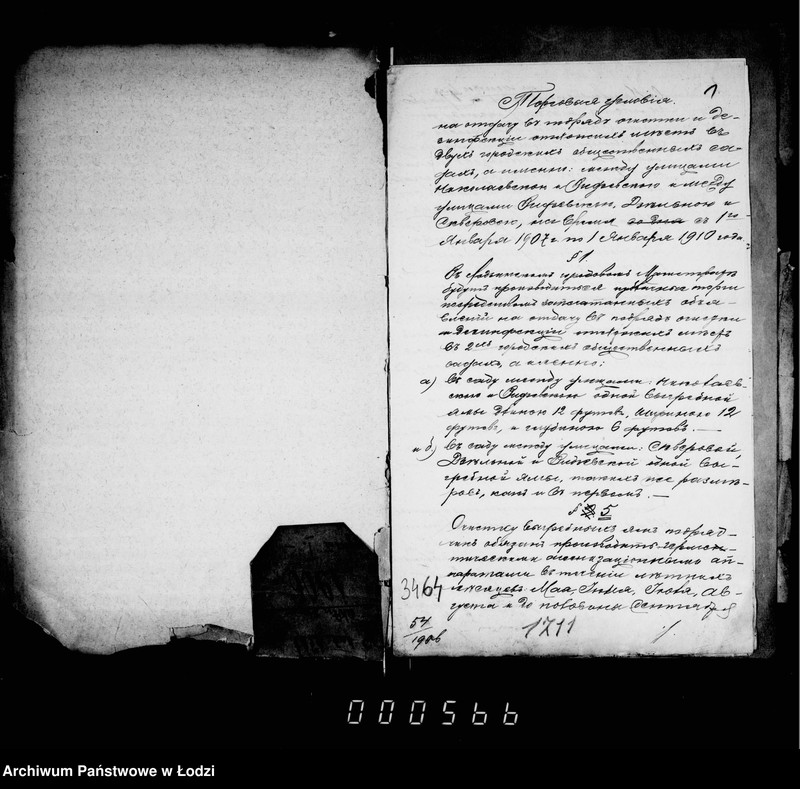 1.
Торговыя условія
на отдачу въ подрядъ очистки и де-
зинфекціи отхожихъ мѣстъ въ
двухъ городскихъ общественныхъ са-
дахъ, а именно: между улицами
Николаевскою и Видзевскою и между
улицами Видзевскою, Дѣльною и
Скверовою, на время съ 1го
Января 1907 г. по 1 Января 1910 года.
§ 1.
Въ Лодзинскомъ городовомъ Магистратѣ
будутъ производиться торги
посредствомъ запечатанныхъ объя-
вленій на отдачу въ подрядъ очистки
и дезинфекціи отхожихъ мѣстъ
въ 2хъ городскихъ общественныхъ
садахъ, а именно:
а) въ саду между улицами: Николаев-
скою и Видзевскою одной выгребной
ямы длиною 12 футовъ, шириною 12
футовъ, и глубиною 6 футовъ. —
и б) въ саду между улицами: Скверовой,
Дѣльной и Видзевской одной вы-
гребной ямы, такихъ же размѣ-
ровъ, какъ и въ первомъ. —
§ 5
Очистку выгребныхъ ямъ подряд-
чикъ обязанъ производить герме-
тическими ап-
паратами въ теченіи лѣтнихъ
мѣсяцевъ Мая, Іюня, Іюля, Ав-
густа и до половины Сентября
3464
54/1906
1711
000566
Archiwum Państwowe w Łodzi